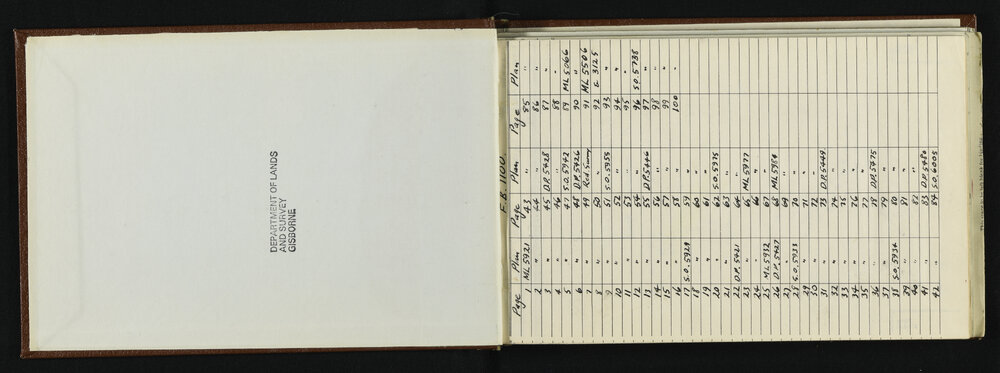 DEPARTMENT OF LANDS
AND SURVEY
GISBORNE
F.B. 1100.
Page Plan Page Plan Page Plan
1 ML 5921 43 " 85 "
2 " 44 " 86 "
3 " 45 D.P. 5428 87 "
4 " 46 " 88 "
5 " 47 S.O. 5942 89 ML 5066
6 " 48 D.P. 5426 90 "
7 " 49 Rod Survey 91 ML 5506
8 " 50 " 92 & 3125
9 " 51 S.O. 5955 93 "
10 " 52 " 94 "
11 " 53 " 95 "
12 " 54 " 96 S.O. 5738
13 " 55 D.P. 5446 97 "
14 " 56 " 98 "
15 " 57 " 99 "
16 " 58 " 100 "
17 S.O. 5929 59 "
18 " 60 "
19 " 61 "
20 " 62 S.O. 5975
21 " 63 "
22 D.P. 5421 64 "
23 " 65 ML 5977
24 " 66 "
25 ML 5932 67 "
26 D.P. 5427 68 ML 5954
27 " 69 "
28 S.O. 5933 70 "
29 " 71 "
30 " 72 "
31 " 73 D.P. 5449
32 " 74 "
33 " 75 "
34 " 76 "
35 " 77 "
36 " 78 D.P. 5475
37 " 79 "
38 S.O. 5934 80 "
39 " 81 "
40 " 82 "
41 " 83 D.P. 5480
42 " 84 S.O. 6005